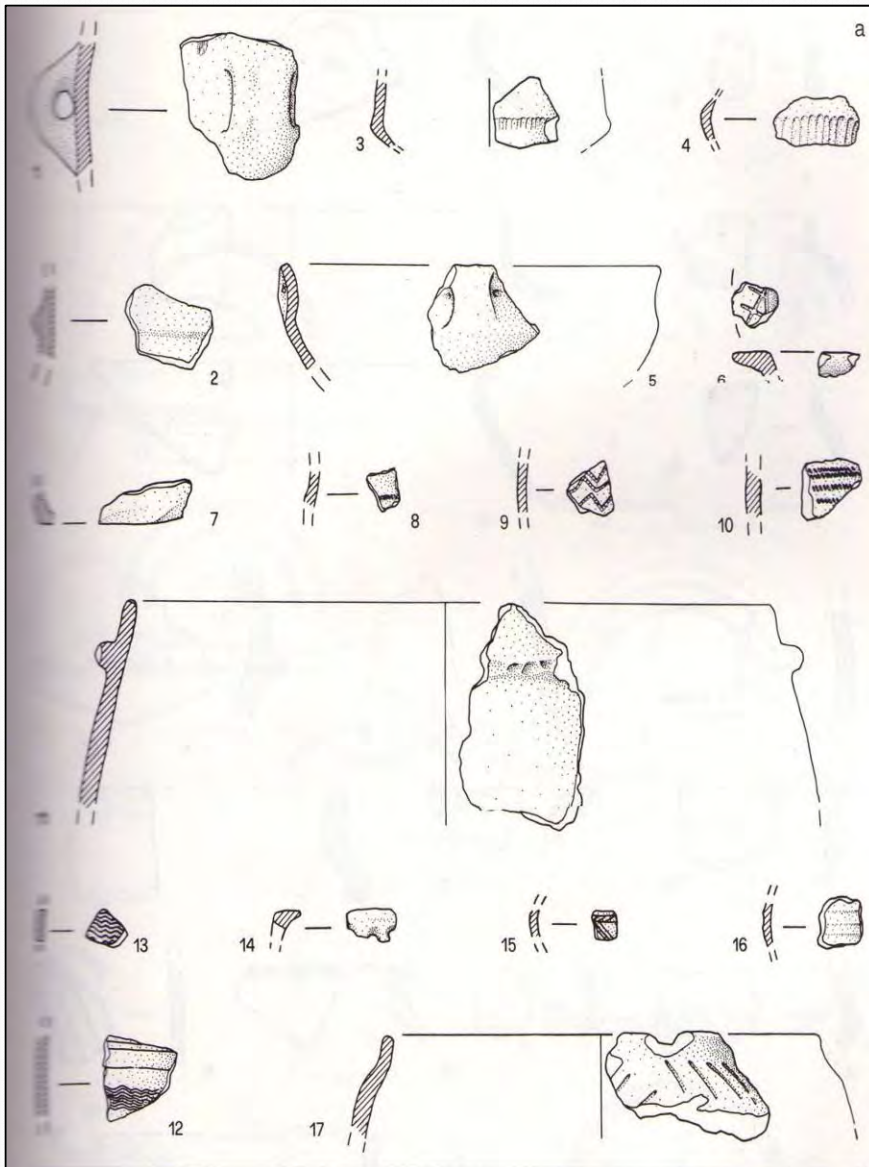 a
3
4
2
5
6
7
8
9
10
13
14
15
16
12
17